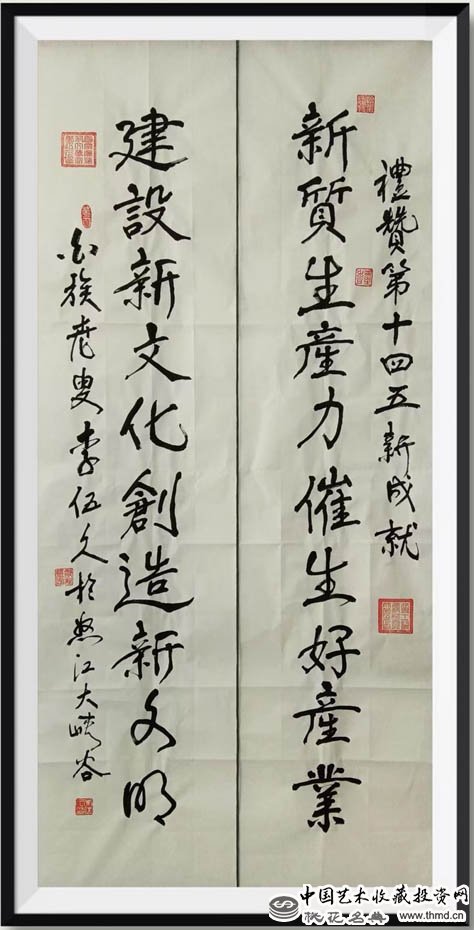 禮贊第十四五新成就
新質生產力催生好產業
建設新文化創造新文明
白族老叟李伍久於怒江大峽谷
中国艺术收藏投资网
桃花名典 www.thmd.cn